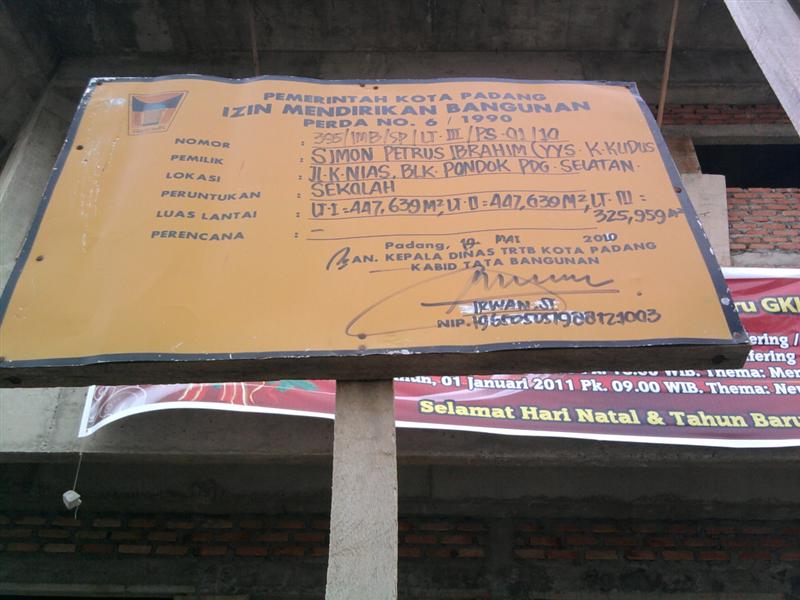 PEMERINTAH KOTA PADANG
IZIN MENDIRIKAN BANGUNAN
PERDA NO. 6 / 1990
NOMOR : 395/IMB/SP/LT.III/PS-01/10
PEMILIK : SIMON PETRUS IBRAHIM (YYS. K. KUDUS
LOKASI : Jl. K. NIAS, BLK. PONDOK PDG. SELATAN.
PERUNTUKAN : SEKOLAH
LUAS LANTAI : LT-I = 447,639 M², LT. II = 447,639 M², LT. III = 325,959 M²
PERENCANA : –
Padang, 19 MAI 2010
AN. KEPALA DINAS TRTB KOTA PADANG
KABID TATA BANGUNAN
IRWAN. ST
NIP. 196505051988121003
ru GKI
01 Januari 2011 Pk. 09.00 WIB. Thema: Ne
Selamat Hari Natal & Tahun Baru